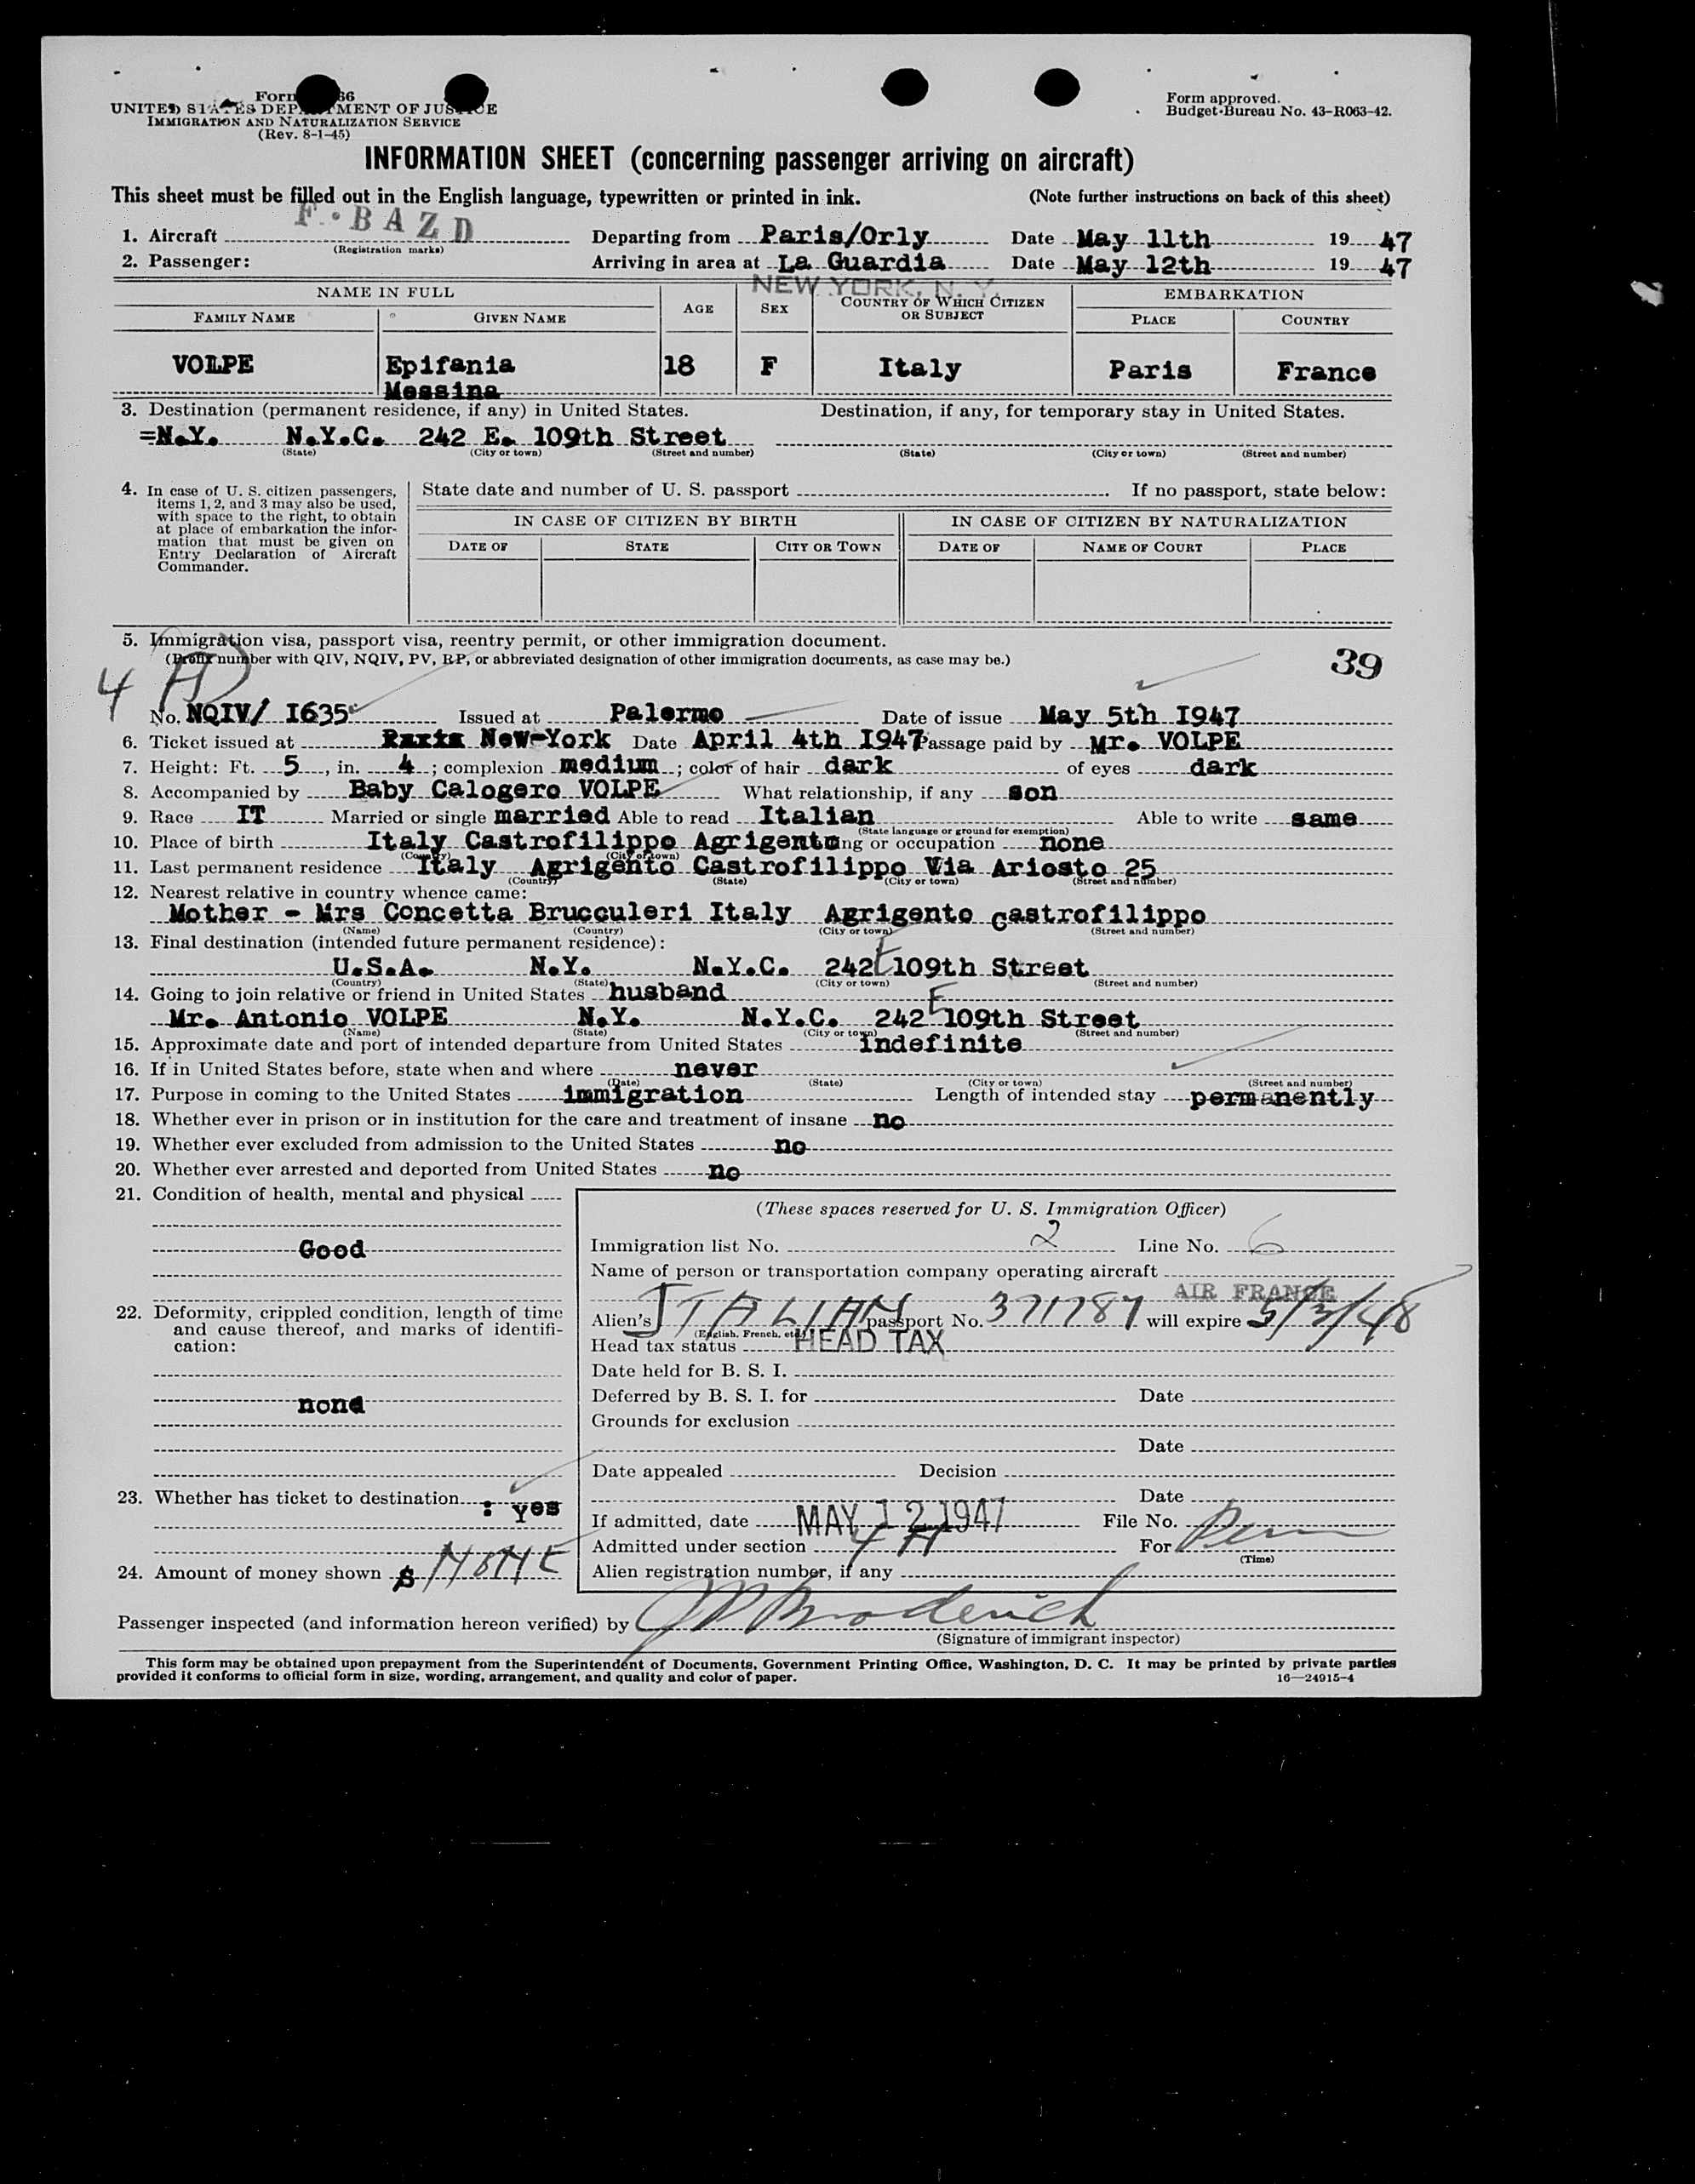 Form 66
UNITED STATES DEPARTMENT OF JUSTICE
IMMIGRATION AND NATURALIZATION SERVICE
(Rev. 8-1-45)
Form approved.
Budget Bureau No. 43-R063-42.
INFORMATION SHEET (concerning passenger arriving on aircraft)
This sheet must be filled out in the English language, typewritten or printed in ink. (Note further instructions on back of this sheet)
1. Aircraft F·BAZD Departing from Paris/Orly Date May 11th 19 47
(Registration marks)
2. Passenger: Arriving in area at La Guardia Date May 12th 19 47
NEW YORK, N. Y.
NAME IN FULL AGE SEX COUNTRY OF WHICH CITIZEN OR SUBJECT EMBARKATION
FAMILY NAME GIVEN NAME PLACE COUNTRY
VOLPE Epifania 18 F Italy Paris France
Messina
3. Destination (permanent residence, if any) in United States. Destination, if any, for temporary stay in United States.
=N.Y. N.Y.C. 242 E. 109th Street
(State) (City or town) (Street and number) (State) (City or town) (Street and number)
4. In case of U. S. citizen passengers, items 1, 2, and 3 may also be used, with space to the right, to obtain at place of embarkation the information that must be given on Entry Declaration of Aircraft Commander.
State date and number of U. S. passport If no passport, state below:
IN CASE OF CITIZEN BY BIRTH IN CASE OF CITIZEN BY NATURALIZATION
DATE OF STATE CITY OR TOWN DATE OF NAME OF COURT PLACE
5. Immigration visa, passport visa, reentry permit, or other immigration document.
(Prefix number with QIV, NQIV, PV, RP, or abbreviated designation of other immigration documents, as case may be.)
39
4 A
No. NQIV/ I635 Issued at Palermo Date of issue May 5th I947
6. Ticket issued at New-York Date April 4th I947 Passage paid by Mr. VOLPE
7. Height: Ft. 5, in. 4; complexion medium; color of hair dark of eyes dark
8. Accompanied by Baby Calogero VOLPE What relationship, if any son
9. Race IT Married or single married Able to read Italian Able to write same
(State language or ground for exemption)
10. Place of birth Italy Castrofilippo Agrigento ing or occupation none
(Country) (City or town)
11. Last permanent residence Italy Agrigento Castrofilippo Via Ariosto 25
(Country) (State) (City or town) (Street and number)
12. Nearest relative in country whence came:
Mother - Mrs Concetta Brucculeri Italy Agrigento castrofilippo
(Name) (Country) (City or town) (Street and number)
13. Final destination (intended future permanent residence):
U.S.A. N.Y. N.Y.C. 242 E 109th Street
(Country) (State) (City or town) (Street and number)
14. Going to join relative or friend in United States husband
Mr. Antonio VOLPE N.Y. N.Y.C. 242 E 109th Street
(Name) (State) (City or town) (Street and number)
15. Approximate date and port of intended departure from United States indefinite
16. If in United States before, state when and where never
(Date) (State) (City or town) (Street and number)
17. Purpose in coming to the United States immigration Length of intended stay permanently
18. Whether ever in prison or in institution for the care and treatment of insane no
19. Whether ever excluded from admission to the United States no
20. Whether ever arrested and deported from United States no
21. Condition of health, mental and physical
Good
22. Deformity, crippled condition, length of time and cause thereof, and marks of identification:
none
23. Whether has ticket to destination : yes
24. Amount of money shown $ NONE
(These spaces reserved for U. S. Immigration Officer)
Immigration list No. 2 Line No. 6
Name of person or transportation company operating aircraft
AIR FRANCE
Alien's ITALIAN passport No. 371787 will expire 5/3/48
(English, French, etc.)
Head tax status HEAD TAX
Date held for B. S. I.
Deferred by B. S. I. for Date
Grounds for exclusion
Date
Date appealed Decision
Date
If admitted, date MAY 12 1947 File No.
Admitted under section 4 A For Perm
(Time)
Alien registration number, if any
Passenger inspected (and information hereon verified) by J P Broderick
(Signature of immigrant inspector)
This form may be obtained upon prepayment from the Superintendent of Documents, Government Printing Office, Washington, D. C. It may be printed by private parties
provided it conforms to official form in size, wording, arrangement, and quality and color of paper. 16—24915-4